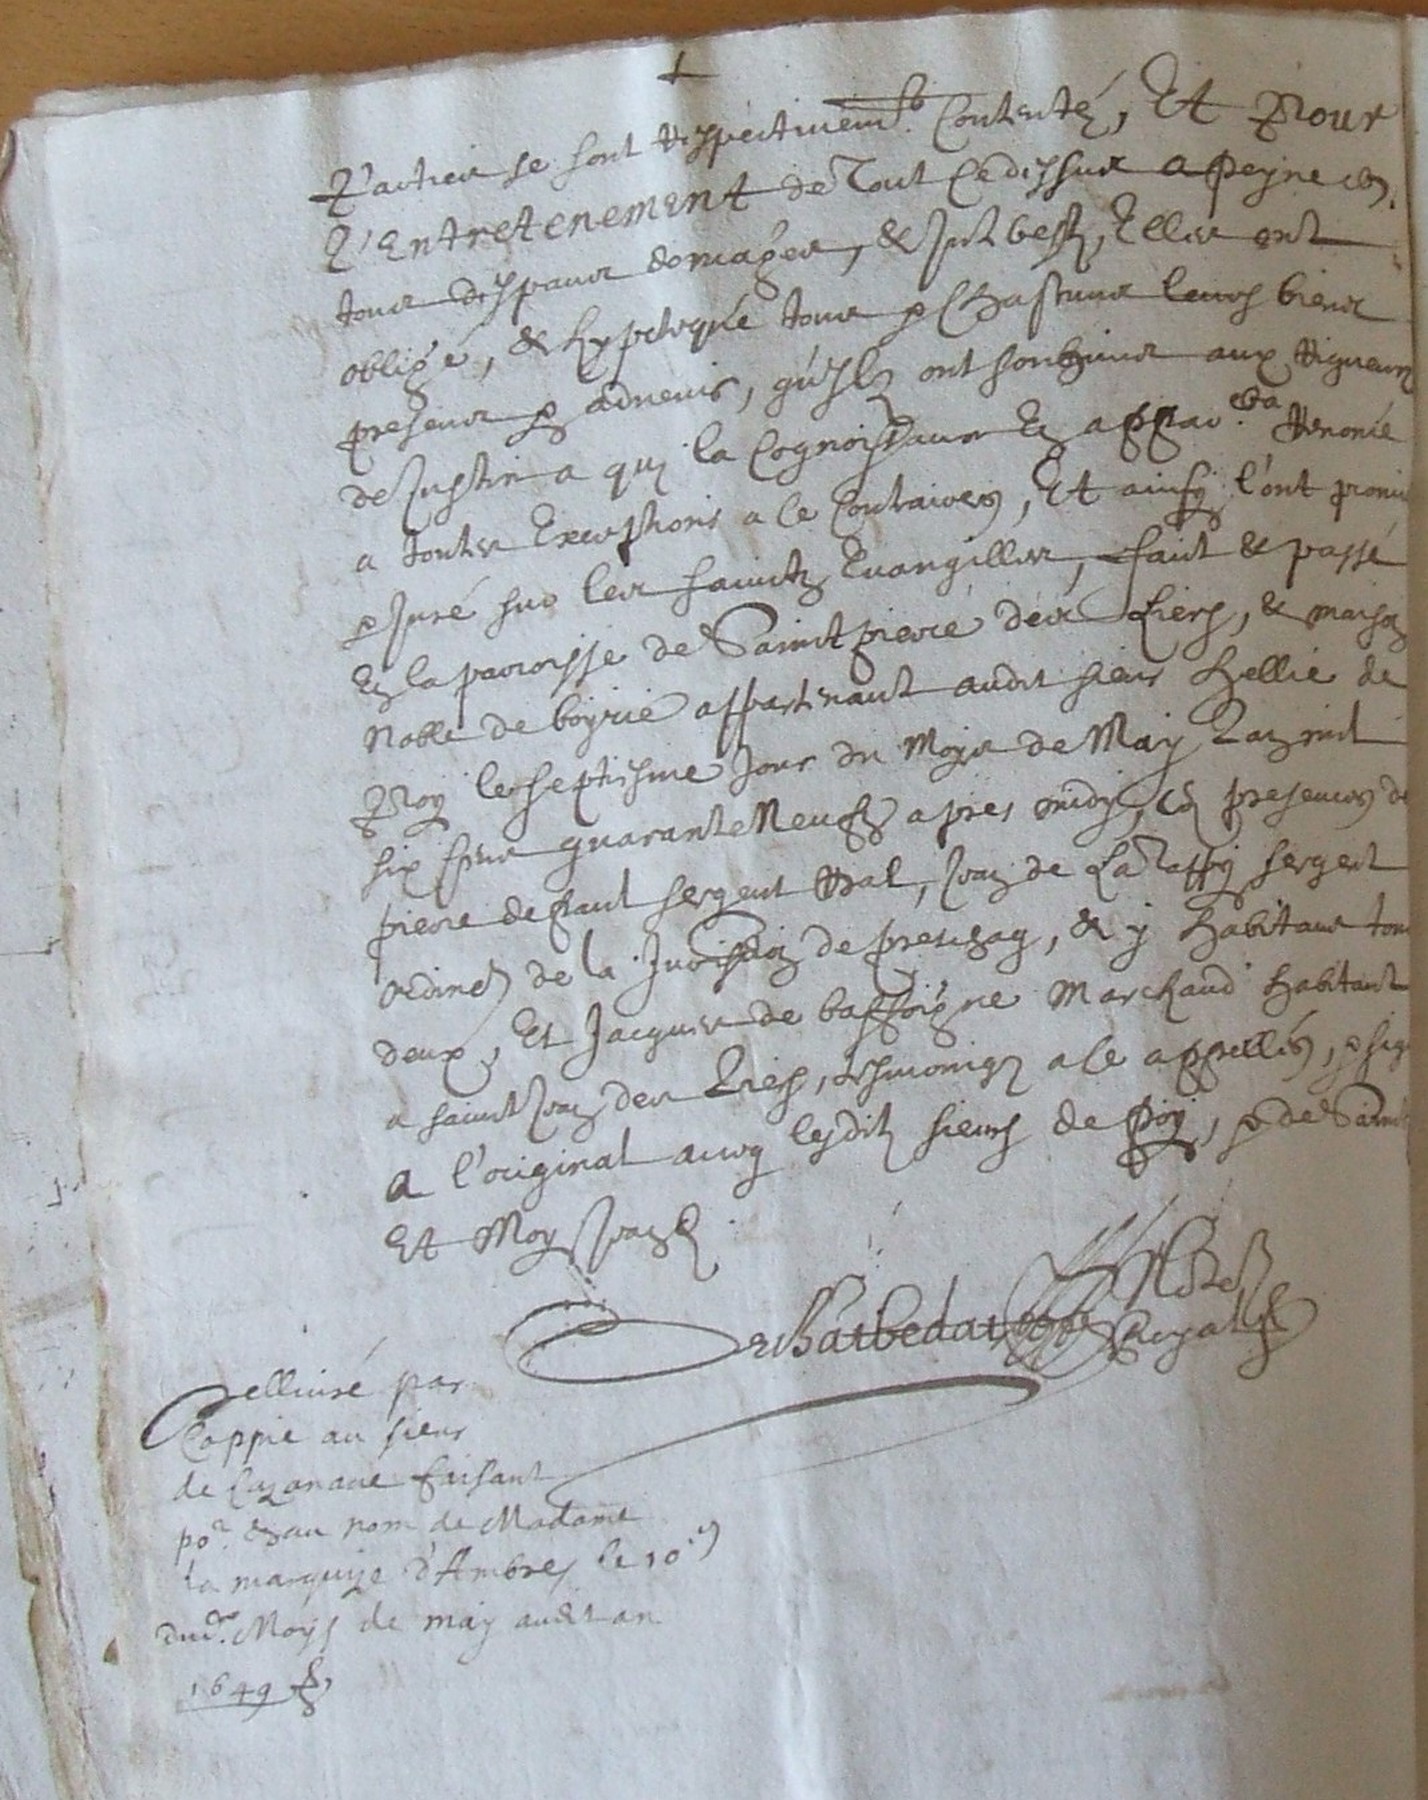 parties se sont respectivem.t contentés, Et Pour
L'Entretenement de Tout Cedissus a peyne de
tous despans domages, & Interestz, Elles ont
obligé, & hypotequé tous & Chascuns leurs biens
presens & advenir, qu'ilz ont soubzmis aux rigueurs
de Justice a quy la Cognoissance En app.a renoncé
a toutes Exceptions a ce Contraires, Et ainsy l'ont promis
& Juré sur les sainctz Evangilles, faict & passé
En la parroisse de Sainct pierre des Liens, & maison
Noble de boyrie appartenant audit sieur hellie de
Poy le septiesme Jour du Moys de May L'an mil
six cens quarante Neufz apres midy, es presences de
pierre de sergent Jean de sergent
ordin.e de la Jurisd.on de & y habitans tous
deux, Et Jacques de Marchand habitant
a sainct Jean des tesmoingz a ce appellés, & signés
a l'original avecq lesditz sieurs de Poy, & de Sainct
Et Moy
DeBarbedat Not.e
Royal
Dellivré par
Coppie au sieur
de Cazanave faisant
po.r & au nom de Madame
la marquise d'Ambres le 10.e
dud. Moys de may audit an
1649